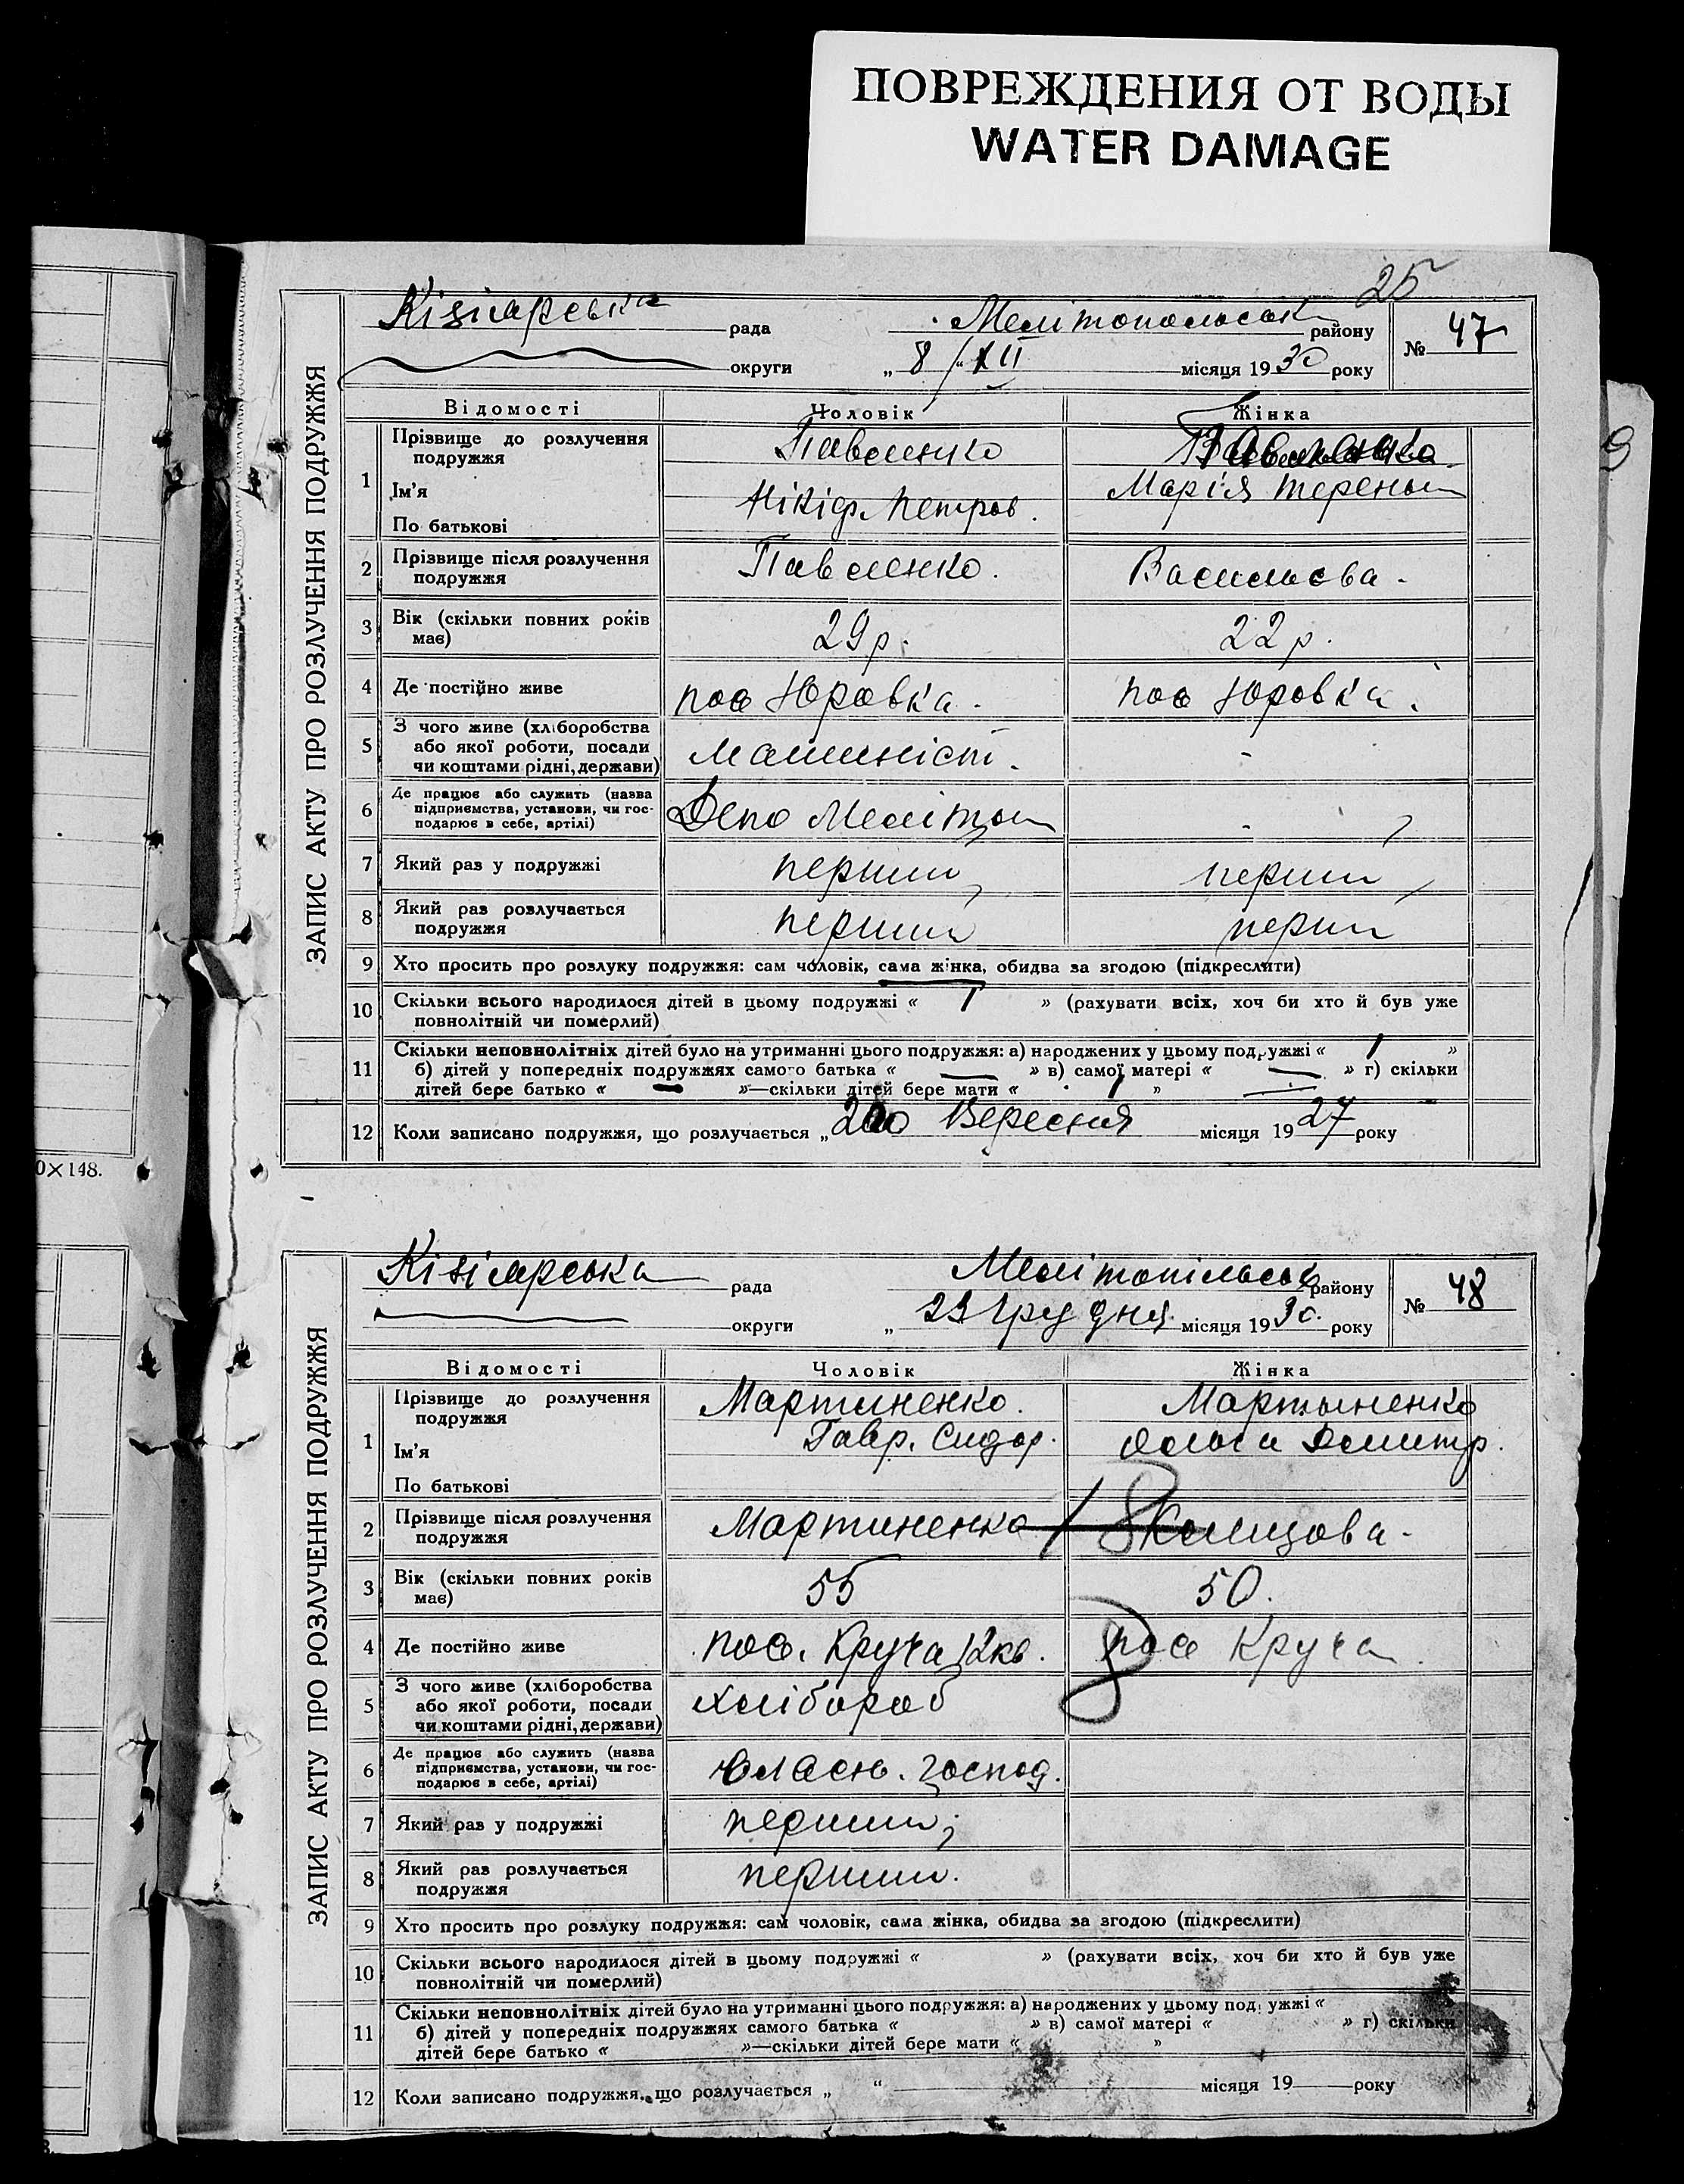 ПОВРЕЖДЕНИЯ ОТ ВОДЫ
WATER DAMAGE
25
9
0×148.
ЗАПИС АКТУ ПРО РОЗЛУЧЕННЯ ПОДРУЖЖЯ
Кізіярська рада Мелітопольськ району № 47
округи „ 8 /“ XII місяця 1930 року
Відомості Чоловік Жінка
1 Прізвище до розлучення подружжя Павленко
Ім'я Нікіф. Петров. Марія
По батькові
2 Прізвище після розлучення подружжя Павленко. Васильєва.
3 Вік (скільки повних років має) 29 р. 22 р.
4 Де постійно живе пос Юровка. пос Юровка.
5 З чого живе (хліборобства або якої роботи, посади чи коштами рідні, держави) Машиніст. -
6 Де працює або служить (назва підприємства, установи, чи господарює в себе, артілі) Депо Меліт -
7 Який раз у подружжі перший перший
8 Який раз розлучається подружжя перший перший
9 Хто просить про розлуку подружжя: сам чоловік, сама жінка, обидва за згодою (підкреслити)
10 Скільки всього народилося дітей в цьому подружжі « 1 » (рахувати всіх, хоч би хто й був уже
повнолітній чи померлий)
11 Скільки неповнолітніх дітей було на утриманні цього подружжя: а) народжених у цьому подружжі « 1 »
б) дітей у попередніх подружжях самого батька « — » в) самої матері « — » г) скільки
дітей бере батько « — »—скільки дітей бере мати « 1 »
12 Коли записано подружжя, що розлучається „ Вересня місяця 1927 року
ЗАПИС АКТУ ПРО РОЗЛУЧЕННЯ ПОДРУЖЖЯ
Кізіярська рада Мелітопільськ району № 48
округи „ 23 грудня місяця 1930. року
Відомості Чоловік Жінка
1 Прізвище до розлучення подружжя Мартиненко. Мартыненко
Ім'я Гавр. Сидор. Ольга Дмитр.
По батькові
2 Прізвище після розлучення подружжя Мартиненко
3 Вік (скільки повних років має) 55 50.
4 Де постійно живе пос. Круча 12кв. пос Круча
5 З чого живе (хліборобства або якої роботи, посади чи коштами рідні, держави) хлібороб
6 Де працює або служить (назва підприємства, установи, чи господарює в себе, артілі) власн. господ.
7 Який раз у подружжі перший
8 Який раз розлучається подружжя перший.
9 Хто просить про розлуку подружжя: сам чоловік, сама жінка, обидва за згодою (підкреслити)
10 Скільки всього народилося дітей в цьому подружжі « » (рахувати всіх, хоч би хто й був уже
повнолітній чи померлий)
11 Скільки неповнолітніх дітей було на утриманні цього подружжя: а) народжених у цьому подружжі «
б) дітей у попередніх подружжях самого батька « » в) самої матері « » г) скільки
дітей бере батько « »—скільки дітей бере мати « »
12 Коли записано подружжя, що розлучається „ “ місяця 19 року